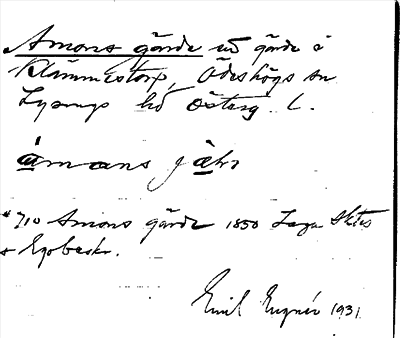 Amons gärde ett gärde i
Klämmestorp, Ödeshögs sn
Lysings hd Österg. L.
åmans jälr
710 Amons gärde 1850 Laga Skifte
Egobeskr.
Emil 1931